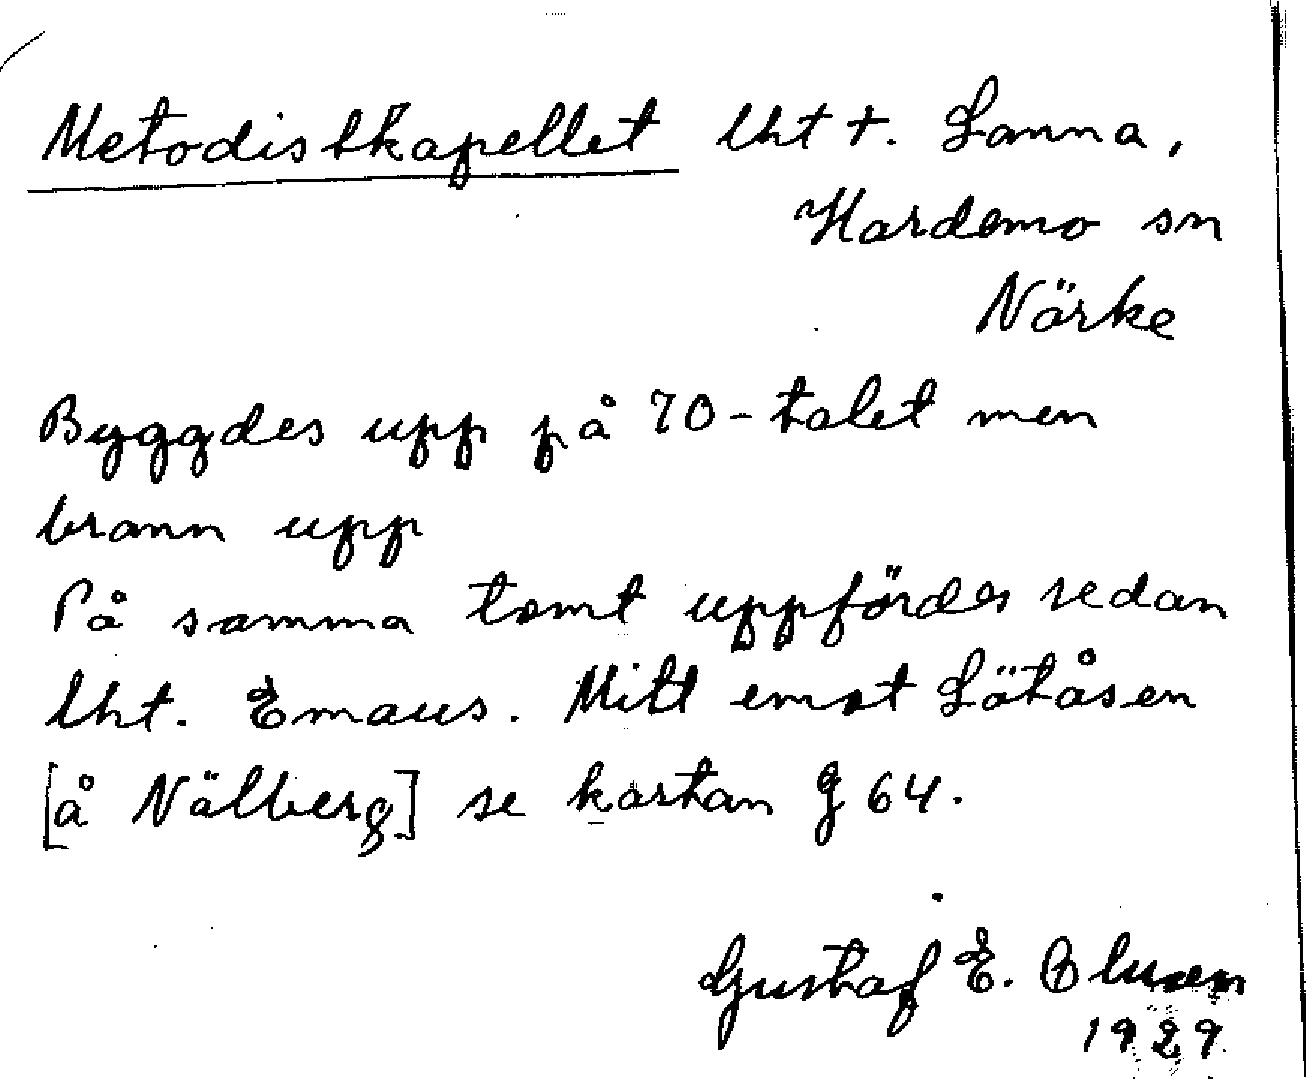 Metodistkapellet lht †. Lanna,
Hardemo sn
Närke
Byggdes upp på 70-talet men
brann upp
På samma tomt uppfördes sedan
lht. Emaus. Mitt emot Lötåsen
[å Nälberg] se kartan g 64.
Gustaf E. Olusen
1929